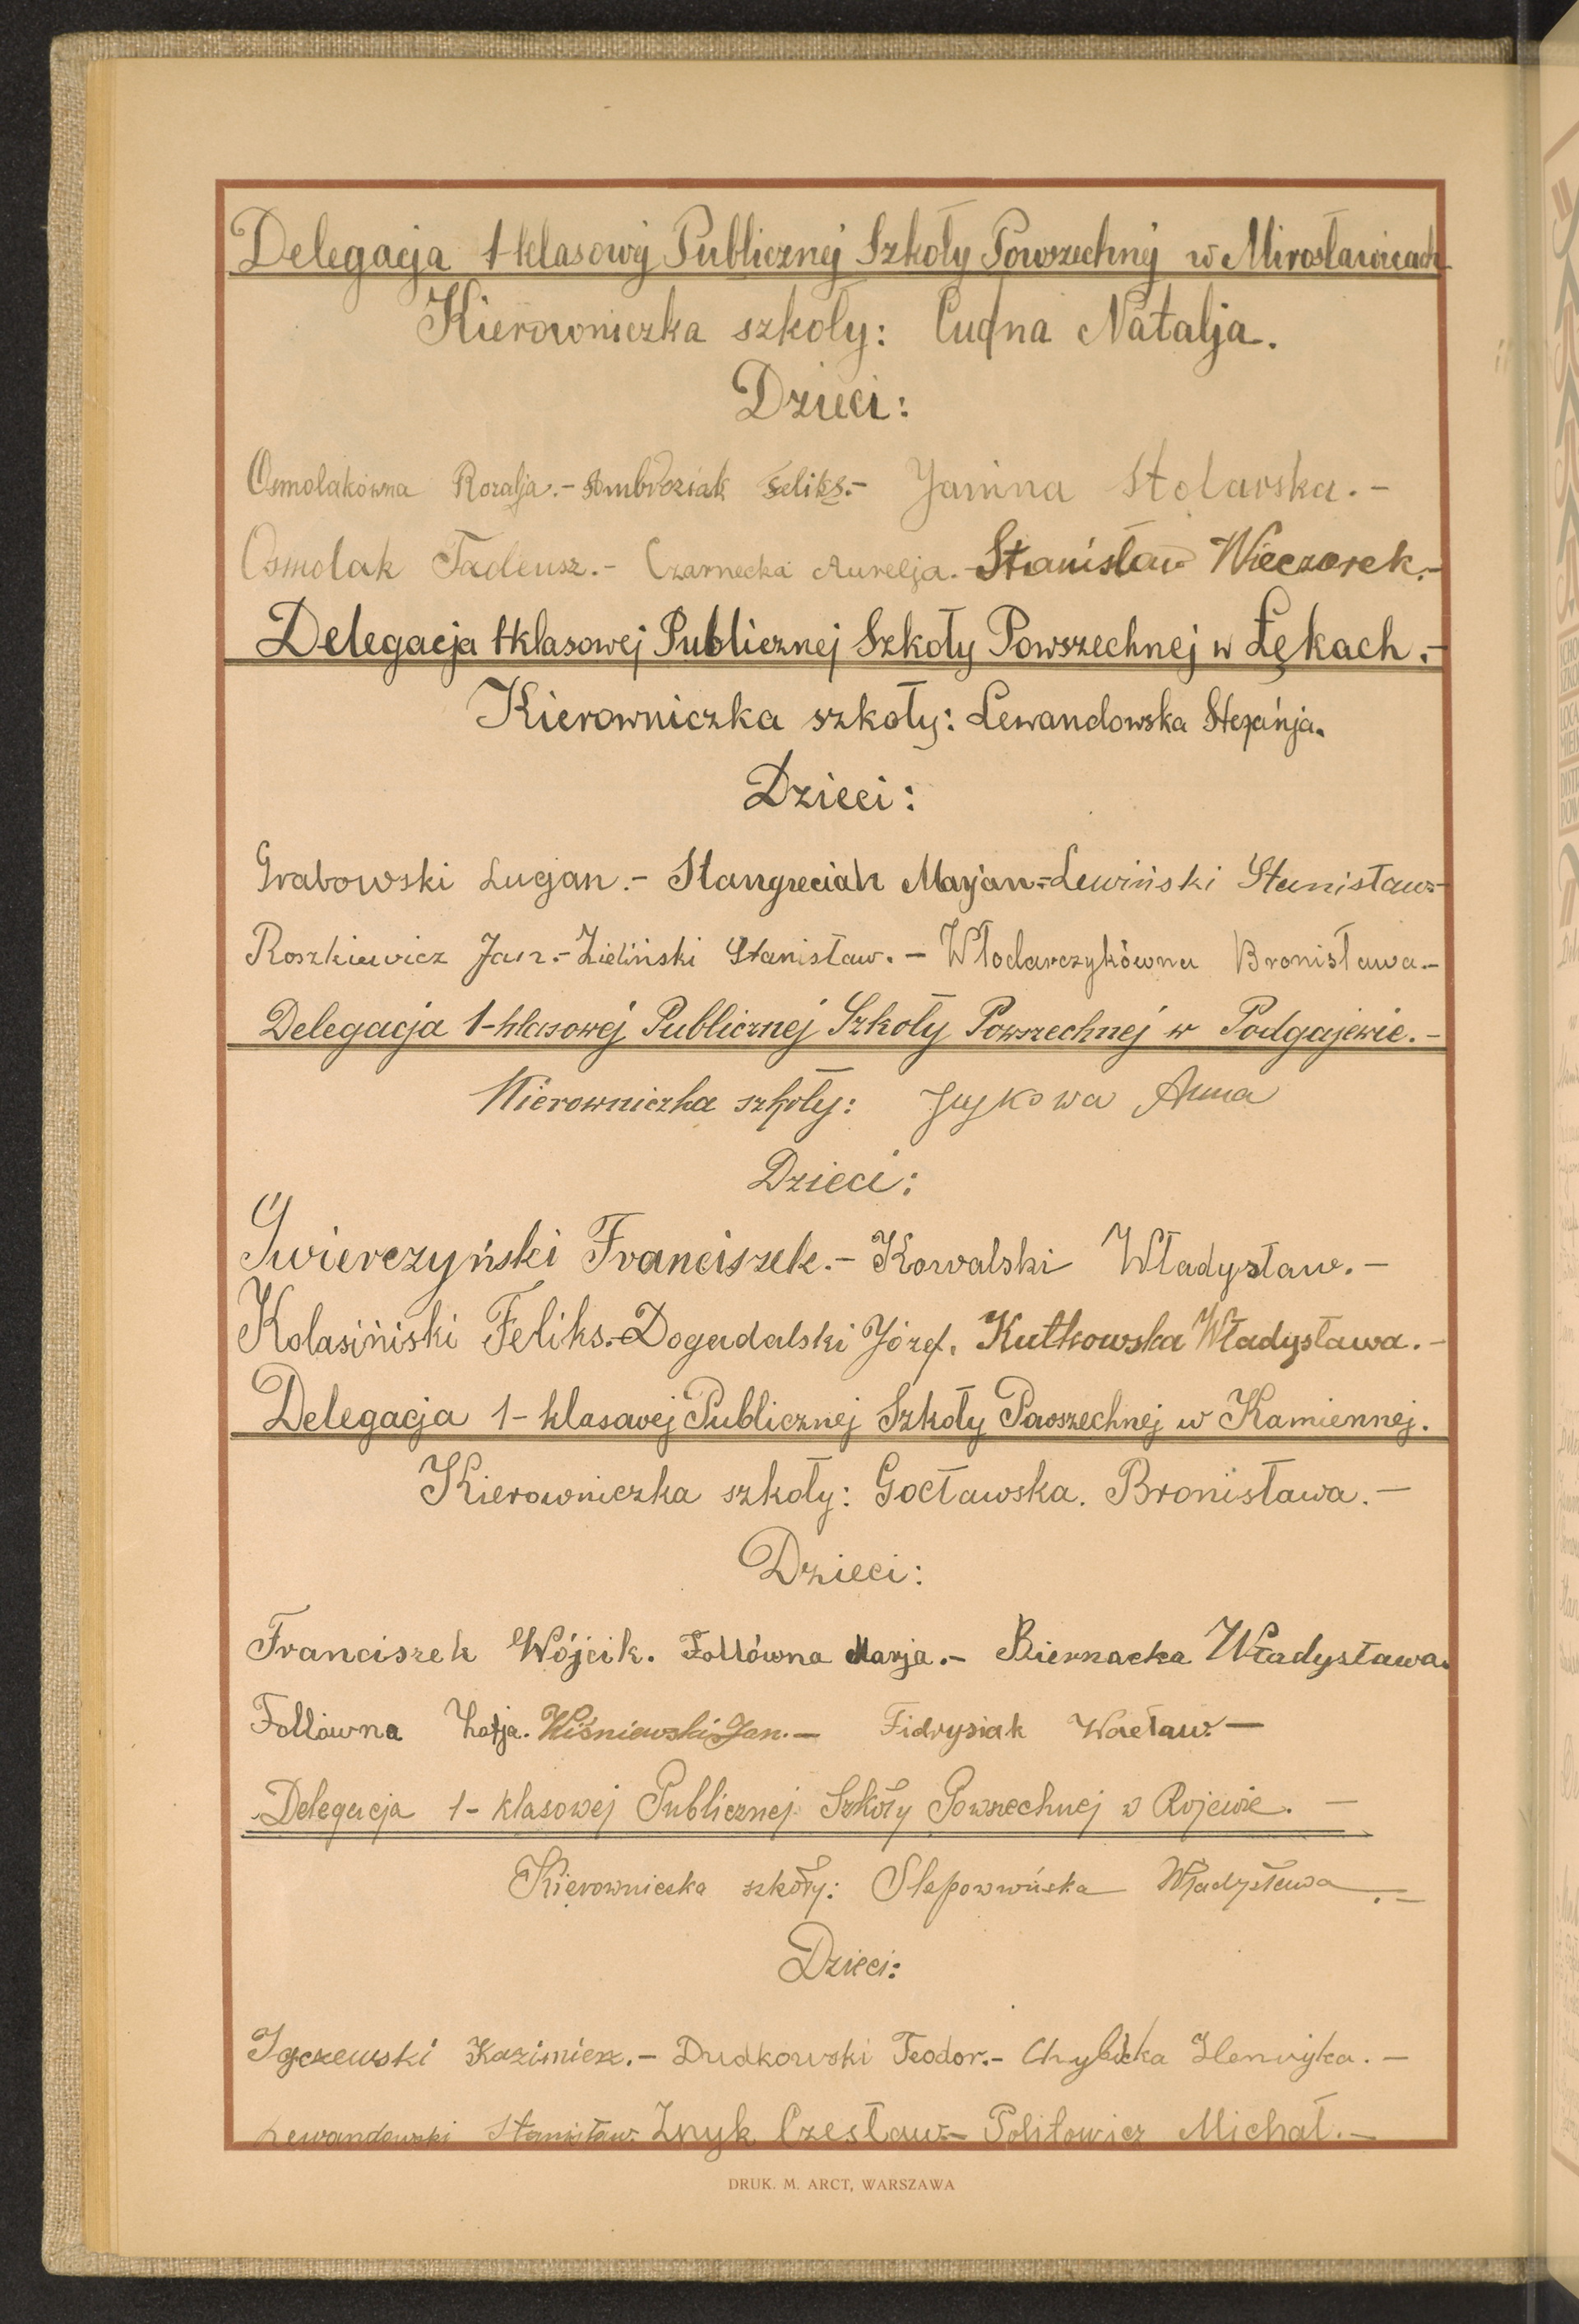 Delegacja 1-klasowej Publicznej Szkoły Powszechnej w Mirosławicach
Kierowniczka szkoły: Cudna Natalja.
Dzieci:
Osmolakówna Rozalja.- Ambroziak Feliks.- Janina Stolarska.-
Osmolak Tadeusz.- Czarnecka Aurelja.- Stanisław Wieczorek.-
Delegacja 1klasowej Publicznej Szkoły Powszechnej w Łękach.-
Kierowniczka szkoły: Lewandowska Stefanja.
Dzieci:
Grabowski Lucjan.- Stangreciak Marjan.- Lewiński Stanisław.-
Roszkiewicz Jan.- Zieliński Stanisław.- Włodarczykówna Bronisława.-
Delegacja 1-klasowej Publicznej Szkoły Powszechnej w Podgajewie.-
Kierowniczka szkoły: Anna
Dzieci:
Świerczyński Franciszek.- Kowalski Władysław.-
Kolasiński Feliks.- Dogadalski Józef. Kutkowska Władysława.-
Delegacja 1-klasowej Publicznej Szkoły Powszechnej w Kamiennej.
Kierowniczka szkoły: Gocławska. Bronisława.-
Dzieci:
Franciszek Wójcik. Follówna Marja.- Biernacka Władysława.
Follówna Zofja. Wiśniewski Jan.- Fidrysiak Wacław.-
Delegacja 1-klasowej Publicznej Szkoły Powszechnej w Rojewie.-
Kierowniczka szkoły: Władysława.-
Dzieci:
Kazimierz.- Dudkowski Teodor.- Chybicka Henryka.-
Lewandowski Stanisław. Znyk Czesław.- Politowicz Michał.-
DRUK. M. ARCT, WARSZAWA